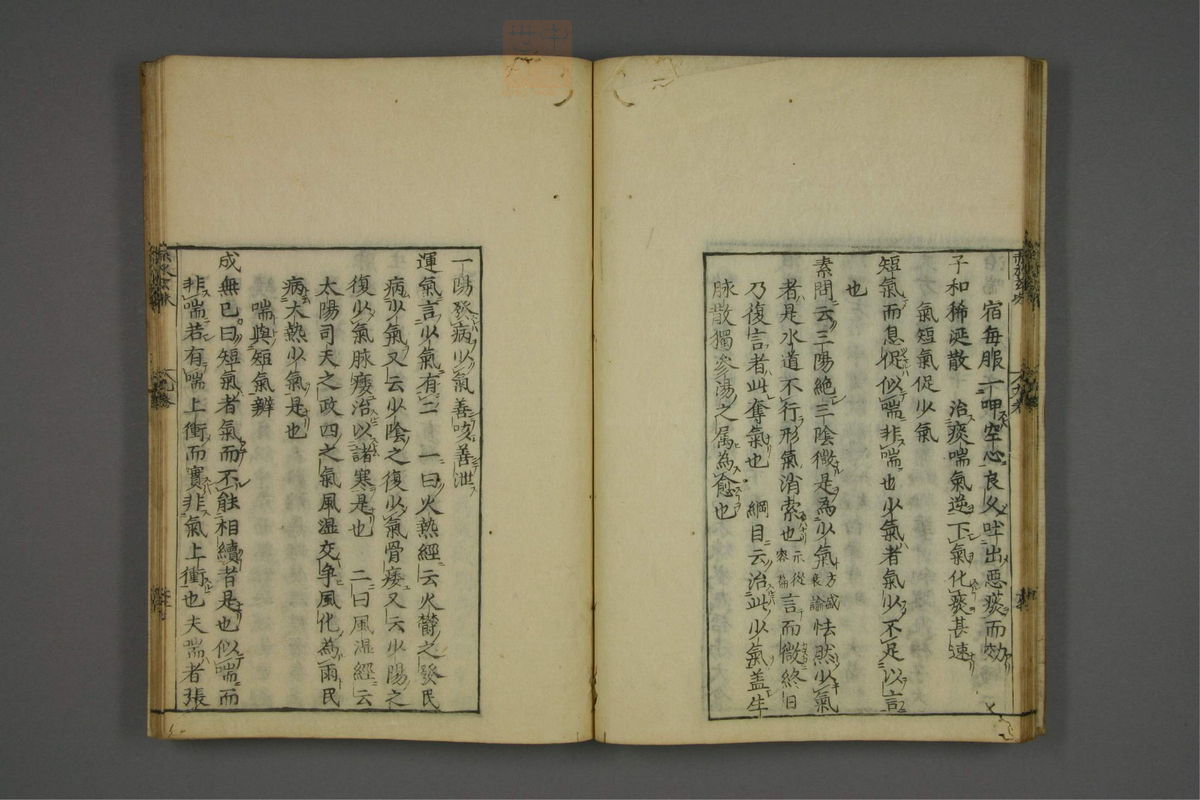 宿每服一呷空心良久吐出惡痰而効
子和稀涎散　治痰喘氣逆下氣化痰甚速
氣短氣促少氣
短氣而息促似喘非喘也少氣者氣少不足以言
也
素問云三陽絶三陰微是為少氣方盛衰論怯然少氣
者是水道不行形氣消索也示從容論言而微終日
乃復言者此奪氣也　綱目云治此少氣盖生
脉散獨參湯之属為愈也
一陽發病少氣善咳善泄
運氣言少氣有二一曰火熱經云火鬱之發民
病少氣又云少陰之復少氣骨痿又云少陽之
復少氣脉痿治以諸寒是也　二曰風湿經云
太陽司天之政四之氣風湿交争風化為雨民
病大熱少氣是也
喘與短氣辨
成無已曰短氣者氣而不能相續者是也似喘而
非喘若有喘上衝而實非氣上衝也夫喘者張